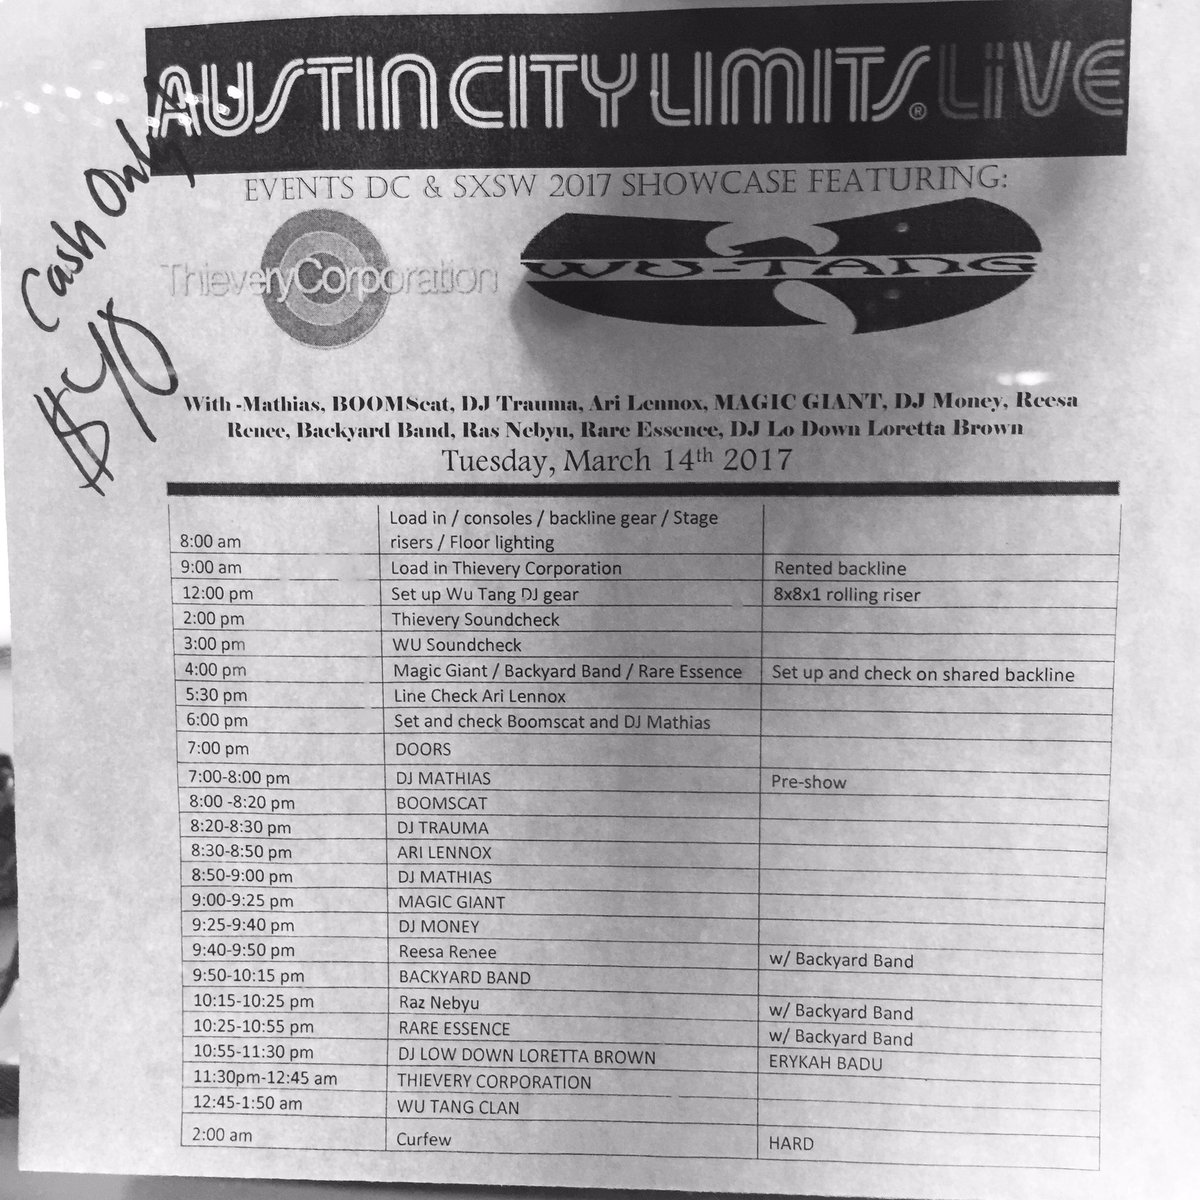 AUSTIN CITY LIMITS® LiVE
Cash Only
$40
EVENTS DC & SXSW 2017 SHOWCASE FEATURING:
ThieveryCorporation
WU-TANG
With -Mathias, BOOMScat, DJ Trauma, Ari Lennox, MAGIC GIANT, DJ Money, Reesa
Renee, Backyard Band, Ras Nebyu, Rare Essence, DJ Lo Down Loretta Brown
Tuesday, March 14th 2017
Load in / consoles / backline gear / Stage
8:00 am risers / Floor lighting
9:00 am Load in Thievery Corporation Rented backline
12:00 pm Set up Wu Tang DJ gear 8x8x1 rolling riser
2:00 pm Thievery Soundcheck
3:00 pm WU Soundcheck
4:00 pm Magic Giant / Backyard Band / Rare Essence Set up and check on shared backline
5:30 pm Line Check Ari Lennox
6:00 pm Set and check Boomscat and DJ Mathias
7:00 pm DOORS
7:00-8:00 pm DJ MATHIAS Pre-show
8:00 -8:20 pm BOOMSCAT
8:20-8:30 pm DJ TRAUMA
8:30-8:50 pm ARI LENNOX
8:50-9:00 pm DJ MATHIAS
9:00-9:25 pm MAGIC GIANT
9:25-9:40 pm DJ MONEY
9:40-9:50 pm Reesa Renee w/ Backyard Band
9:50-10:15 pm BACKYARD BAND
10:15-10:25 pm Raz Nebyu w/ Backyard Band
10:25-10:55 pm RARE ESSENCE w/ Backyard Band
10:55-11:30 pm DJ LOW DOWN LORETTA BROWN ERYKAH BADU
11:30pm-12:45 am THIEVERY CORPORATION
12:45-1:50 am WU TANG CLAN
2:00 am Curfew HARD